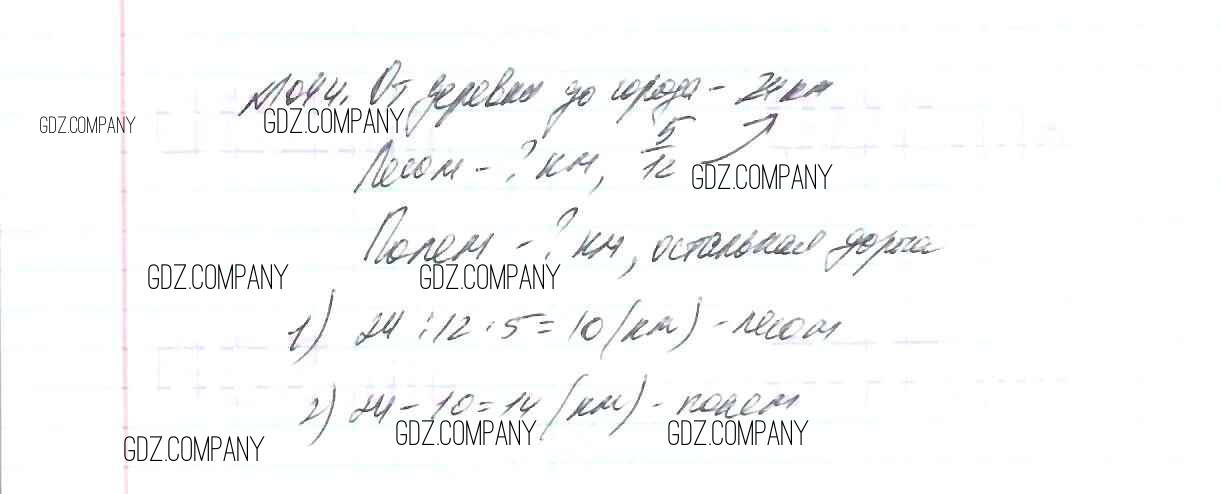 №1044. От деревни до города - 24 км
GDZ.COMPANY GDZ.COMPANY
Лесом - ? км, 5/12
GDZ.COMPANY
Полем - ? км, остальная дорога
GDZ.COMPANY GDZ.COMPANY
1) 24 : 12 · 5 = 10 (км) - лесом
2) 24 - 10 = 14 (км) - полем
GDZ.COMPANY GDZ.COMPANY GDZ.COMPANY